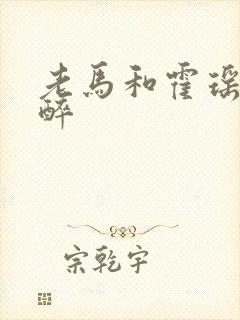 老馬和霍瑶
醉
宗乾宇